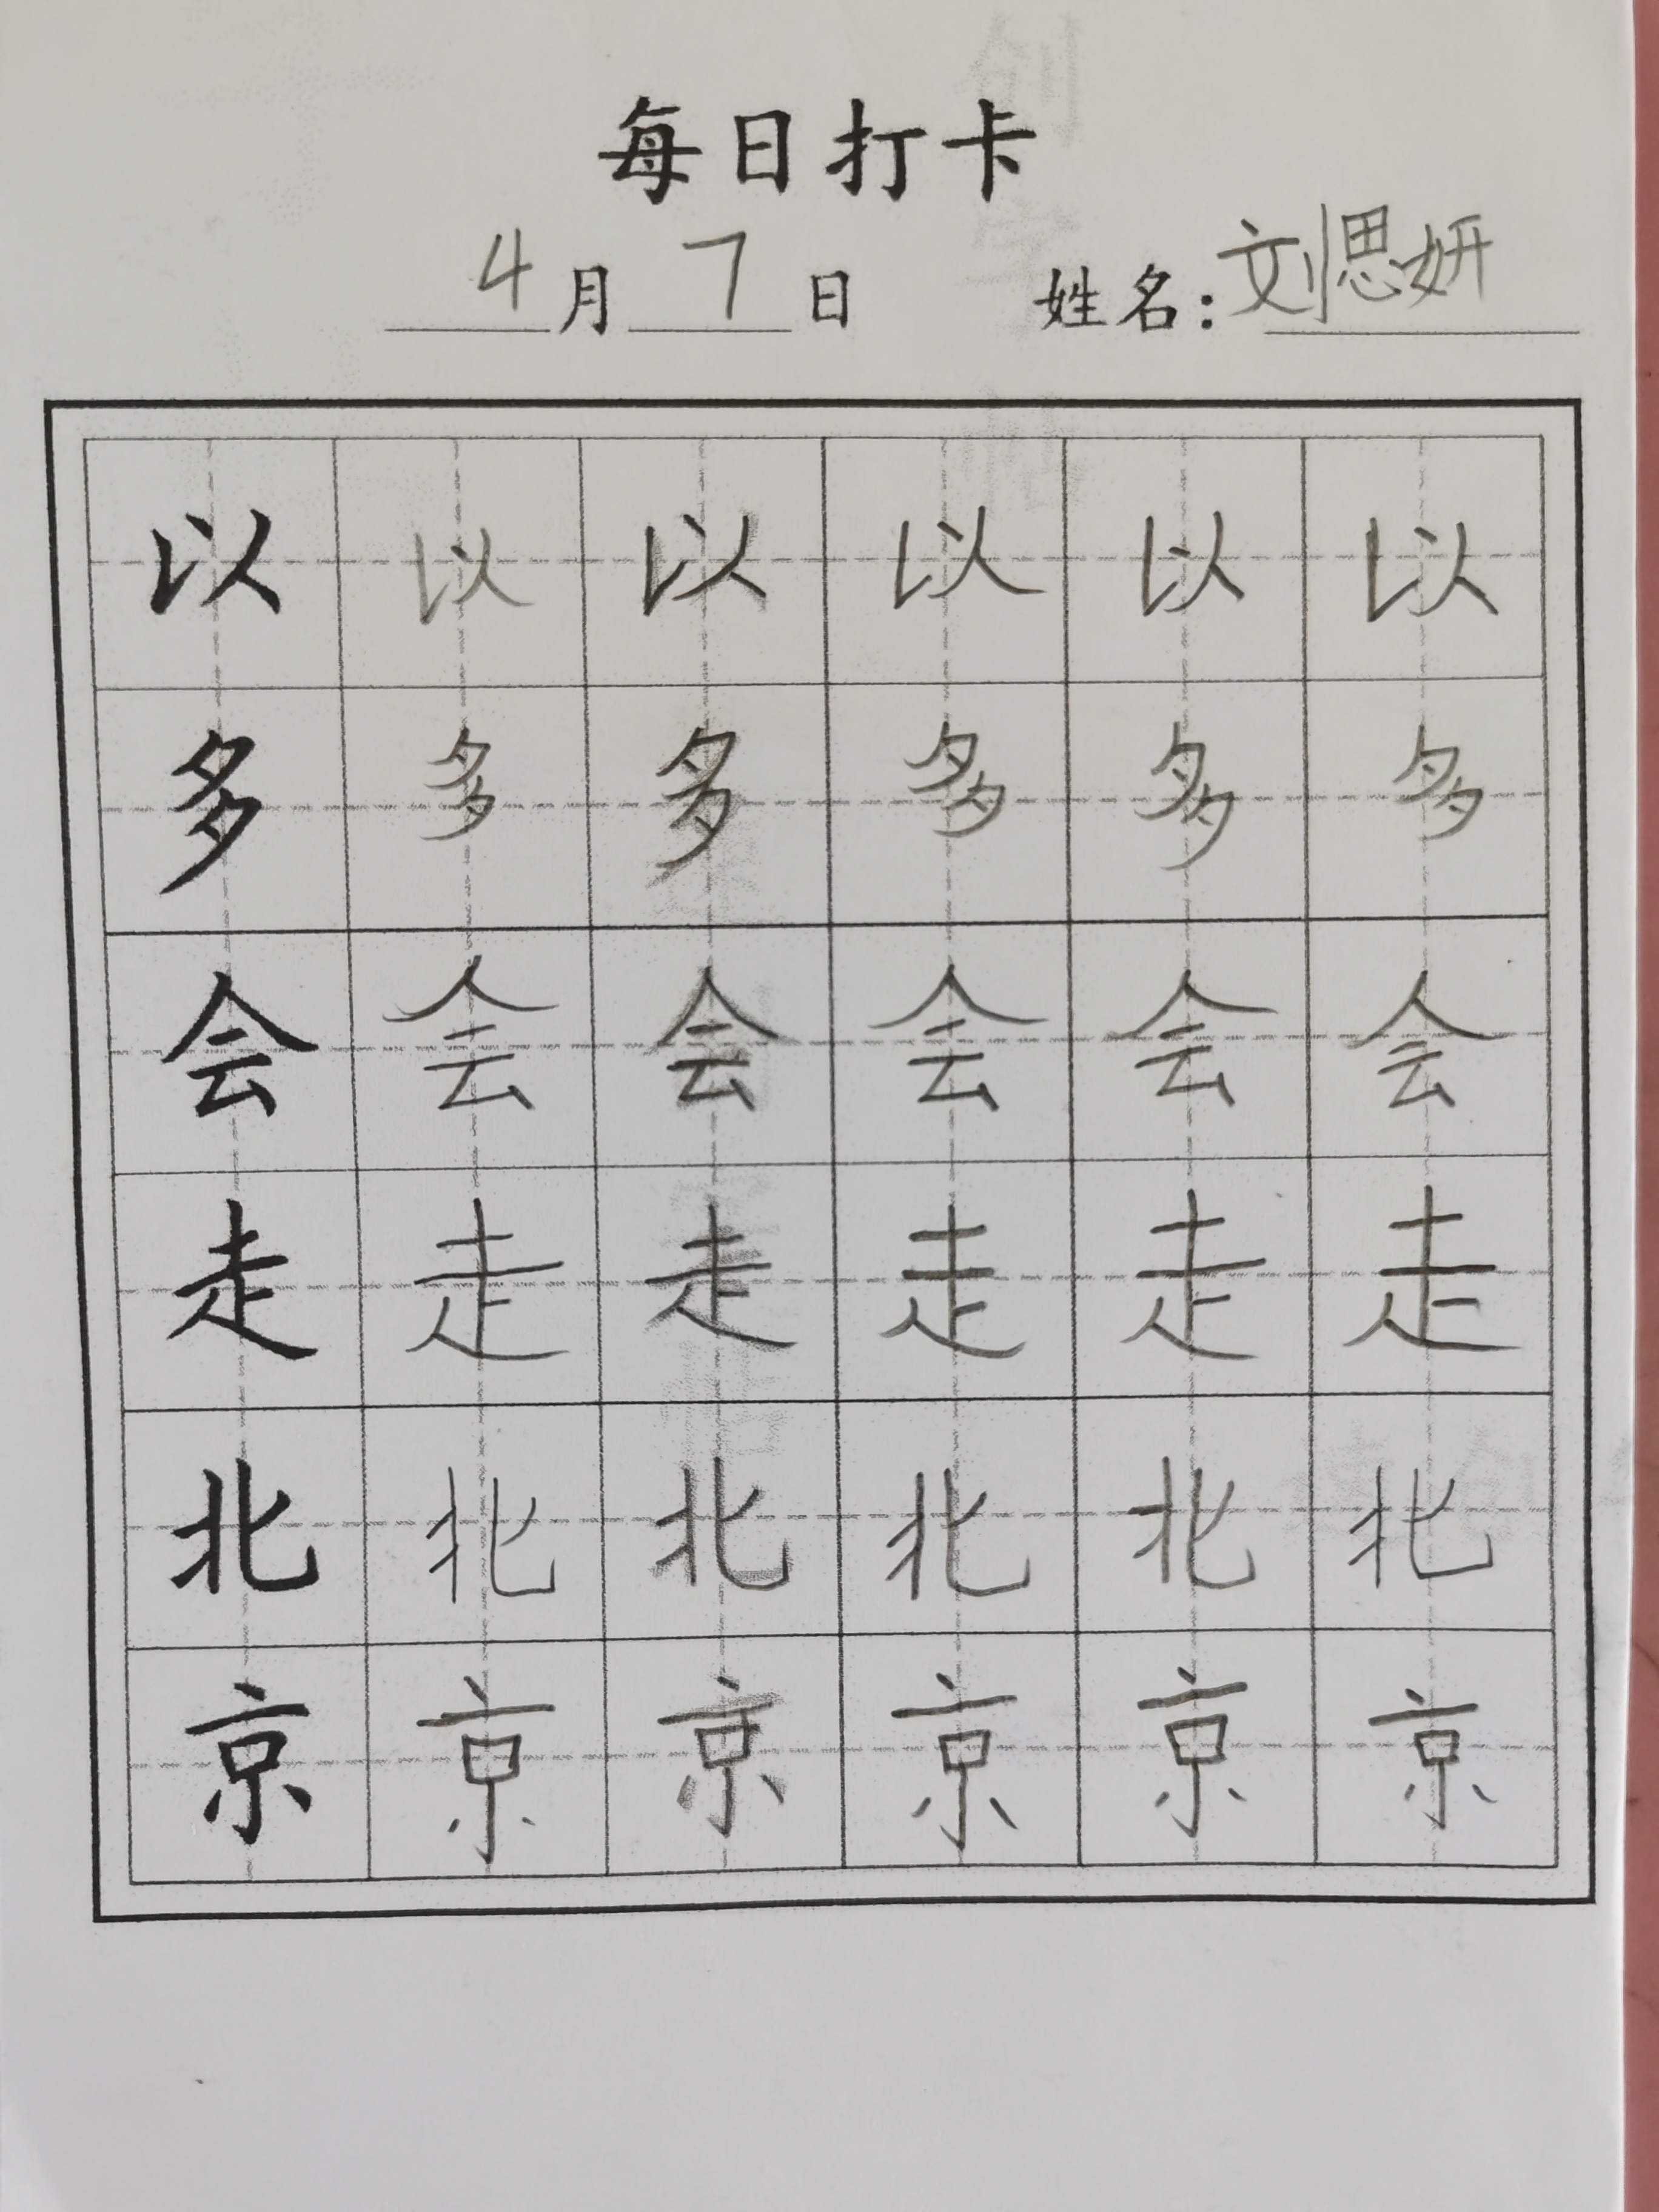 每日打卡
4月7日 姓名:刘思妍
以以以以以以
多多多多多多
会会会会会会
走走走走走走
北北北北北北
京京京京京京